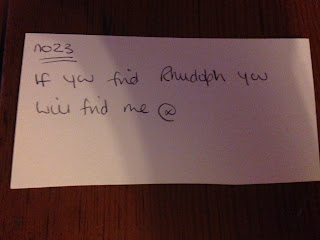 no23
If you find Rhudolph you
will find me ⓧ